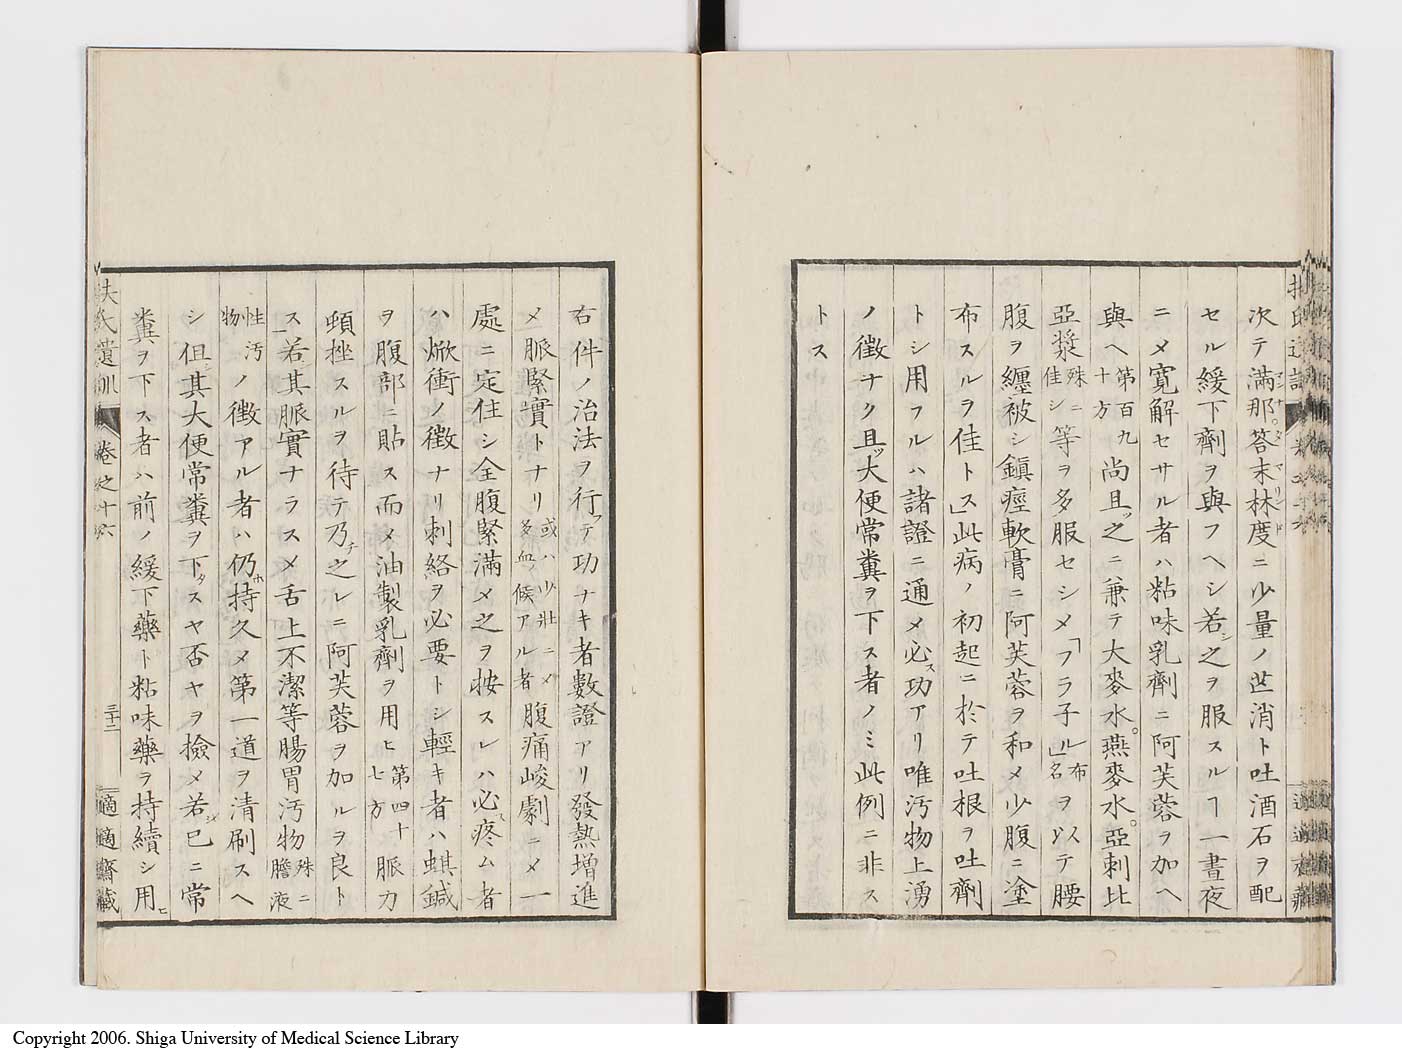 次テ滿那答末林度ニ少量ノ芒消ト吐酒石ヲ配
セル緩下劑ヲ與フヘシ若シ之ヲ服スルヿ一晝夜
ニメ寛解セサル者ハ粘味乳劑ニ阿芙蓉ヲ加ヘ
與ヘ第百九十方尚且ツ之ニ兼テ大麥水。燕麥水。亞剌比
亞漿殊ニ佳シ等ヲ多服セシメ「フラ子ル」布名ヲ以テ腰
腹ヲ纏被シ鎮痙軟膏ニ阿芙蓉ヲ和メ少腹ニ塗
布スルヲ佳トス」此病ノ初起ニ於テ吐根ヲ吐劑
トシ用フルハ諸證ニ通メ必ス功アリ唯汚物上湧
ノ徵ナク且ツ大便常糞ヲ下ス者ノミ此例ニ非ス
トス
右件ノ治法ヲ行フテ功ナキ者數證アリ發熱增進
メ脈緊實トナリ或ハ少壯ニメ多血ノ候アル者腹痛峻劇ニメ一
處ニ定住シ全腹緊滿メ之ヲ按スレハ必ス疼ム者
ハ焮衝ノ徵ナリ刺絡ヲ必要トシ輕キ者ハ蜞鍼
ヲ腹部ニ貼ス而メ油製乳劑ヲ用ヒ第四十七方脈力
頓挫スルヲ待テ乃チ之レニ阿芙蓉ヲ加ルヲ良ト
ス」若其脈實ナラスメ舌上不潔等腸胃汚物殊ニ膽液
性汚物ノ徵アル者ハ仍ホ持久メ第一道ヲ清刷スヘ
シ但シ其大便常糞ヲ下タスヤ否ヤヲ撿メ若シ已ニ常
糞ヲ下ス者ハ前ノ緩下藥ト粘味藥ヲ持續シ用ヒ
扶氏遺訓
卷之十六
三十二
適適齋藏
Copyright 2006. Shiga University of Medical Science Library